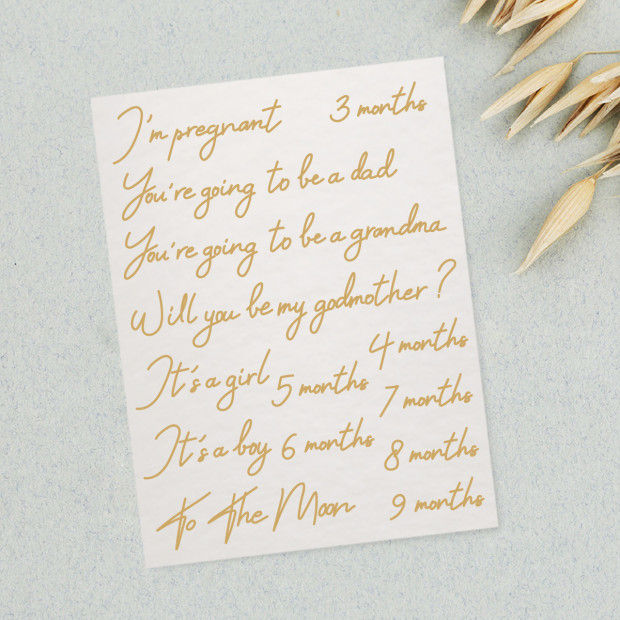 I'm pregnant 3 months
You're going to be a dad
You're going to be a grandma
Will you be my godmother ?
4 months
It's a girl 5 months
7 months
It's a boy 6 months
8 months
To The Moon 9 months